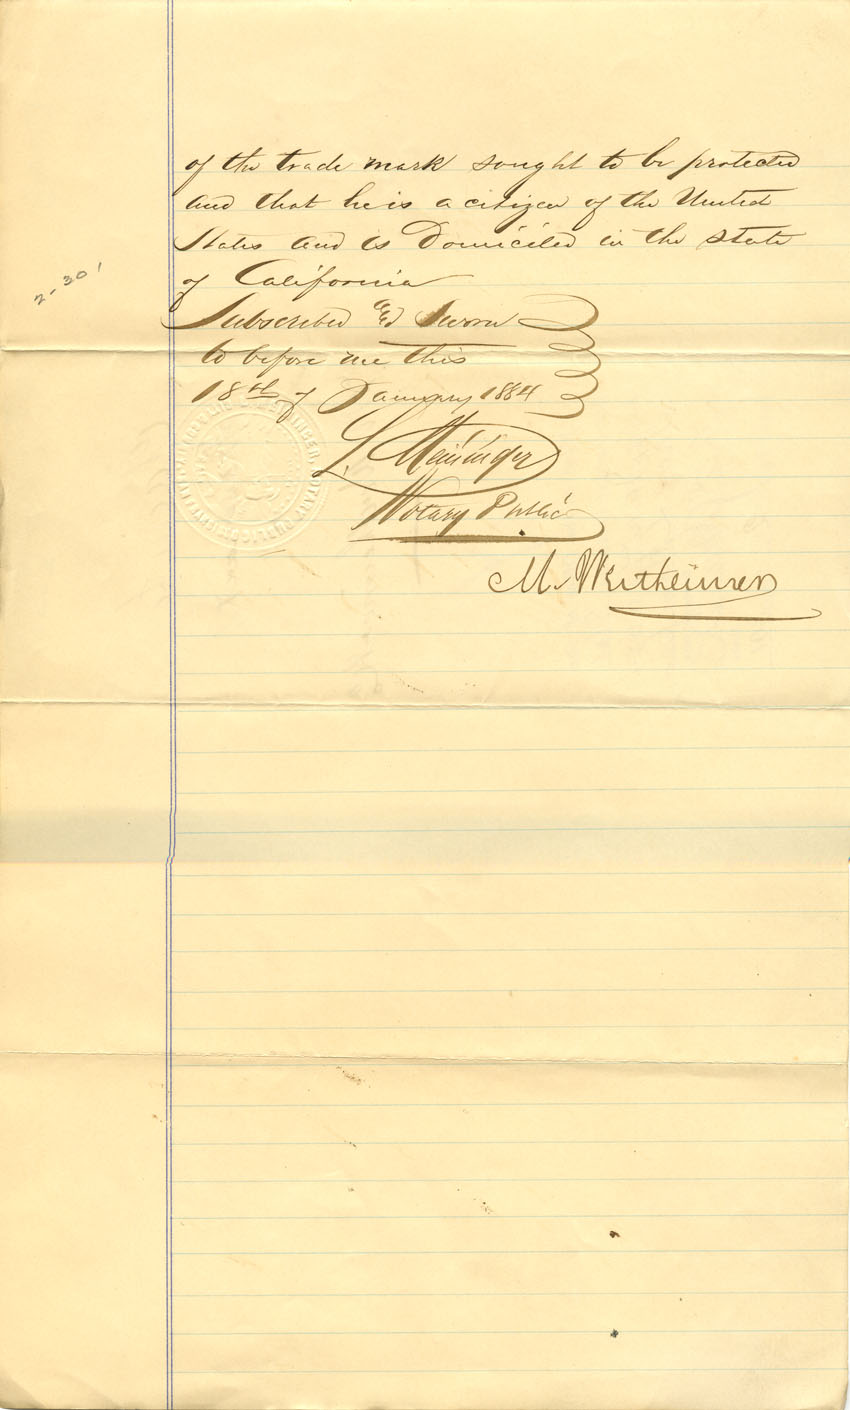 of the trade mark sought to be protected
and that he is a citizen of the United
States and is Domiciled in the state
of California
2-301
Subscribed & Sworn
to before me this
18th of January 1884
L. Meininger
Notary Public
M. Wertheimer
NOTARY PUBLIC